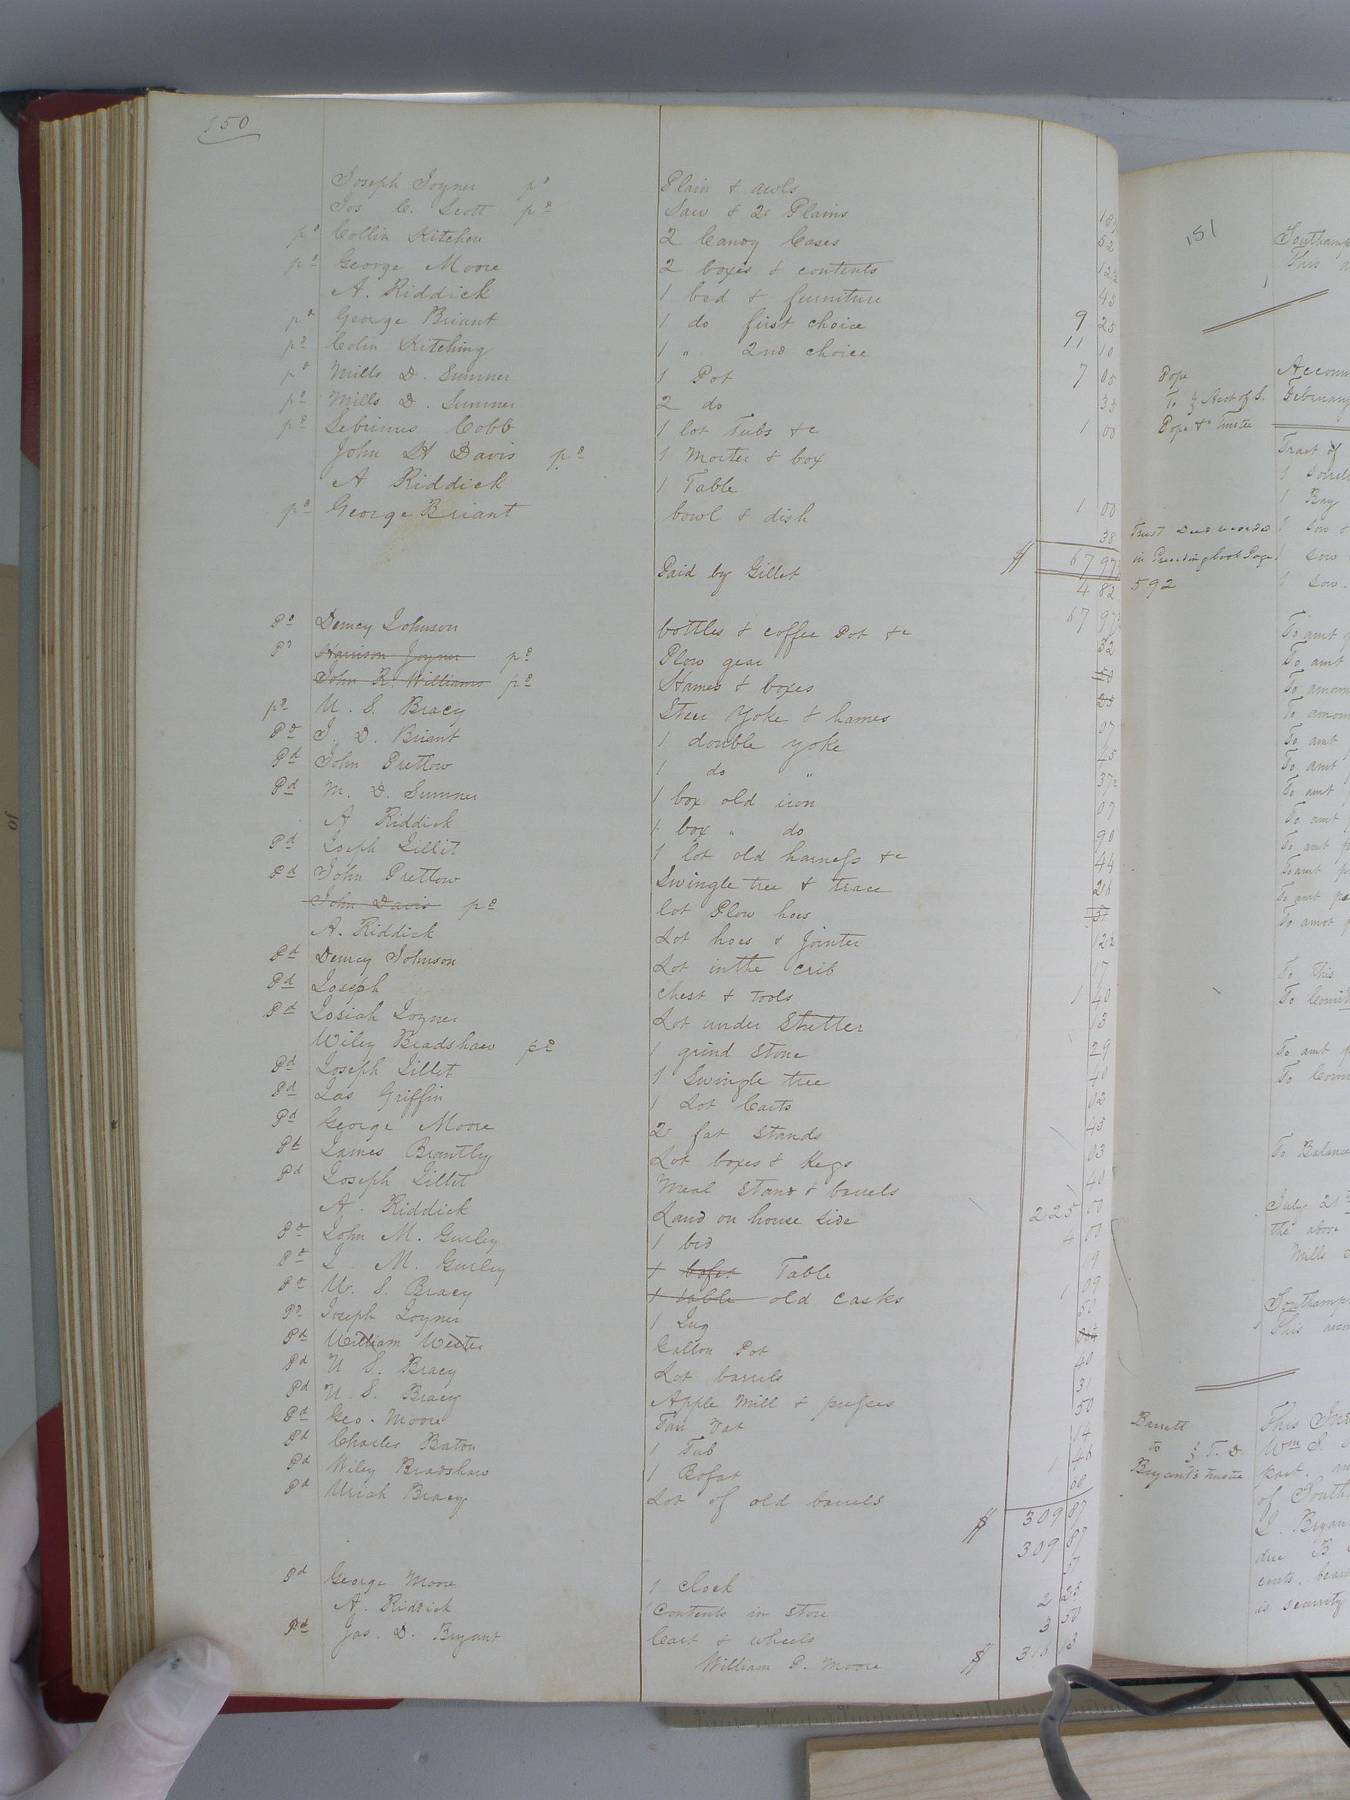 150
Joseph Joyner pd Plain & awls
Jos C. Scott pd Saw & 2 Plains
pd Collin Kitchen 2 Canoy Cases 52
pd George Moore 2 boxes & contents 12½
A. Riddick 1 bed & furniture 45
pd George Briant 1 do first choice 9 25
pd Colin Kitching 1 " 2nd choice 11 10
pd Mills D. Sumner 1 Pot 7 05
pd Mills D. Sumner 2 do 35
pd Sebrinus Cobb 1 lot Tubs &c 1 00
John H Davis pd 1 Morter & box
A Riddick 1 Table
pd George Briant bowl & dish 1 00
38
$ 67 97
Paid by Gillet 4 82
67 97
Pd Demcy Johnson bottles & coffee Pot &c 32
Pd Harrison Joyner pd Plow gear 50
John R. Williams pd Hames & boxes 25
pd U. S. Bracy Steer Yoke & hames 07
Pd J. D. Briant 1 double yoke 45
Pd John Pretlow 1 do " 37½
Pd M. D. Sumner 1 box old iron 07
A Riddick 1 box " do 90
Pd Joseph Gillet 1 lot old harness &c 44
Pd John Pretlow Swingle tree & trace 26
John Davis pd lot Plow hoes
A. Riddick Lot hoes & jointer 12½
Pd Demcy Johnson Lot in the crib 17
Pd Joseph Chest & Tools 1 40
Pd Josiah Joyner Lot under Shelter 13
Wiley Bradshaw pd 1 grind Stone 29
Pd Joseph Gillet 1 Swingle tree 40
Pd Jas Griffin 1 Lot Carts 02
Pd George Moore 2 fat Stands 45
Pd James Brantley Lot boxes & Kegs 03
Pd Joseph Gillet Meal Stand & barrels 40
A. Riddick Land on house Side 225 00
Pd John M. Gurley 1 bed 4 00
Pd J. M. Gurley 1 bofat Table 19
Pd U. S. Bracy 1 table old casks 1 09
Pd Joseph Joyner 1 Jug 50
Pd William Wester Gallon Pot
Pd U S. Bracy Lot barrels 40
Pd U S. Bracy Apple Mill & presses 31
Pd Geo. Moore Tan Vat 50
Pd Charles Baton 1 Tub 14
Pd Wiley Bradshaw 1 Bofat 1 46
Pd Uriah Bracy Lot of old barrels 60
$ 309 87
309 87
Pd George Moore 1 Clock 51
A. Riddick Contents in Store 2 25
Pd Jas. D. Bryant Cart & wheels 3 50
William P. Moore $ 316 13
151
Southamp
This
Pope
To }
Pope & Trustee
Accoun
February
Tract of
1 Sorrel
1 Bay
1 Sow &
1 Sow
1 Sow.
Trust Deed recorded
in Preceding book Page
592
To amt
To amt
To amou
To amou
To amt
To amt
To amt
To amt
To amt
To amt
To amt
To amt
To This
To Comm
To amt
To Comm
To Balance
July 21st
the above
Mills
Southamp
This
Barrett
to } T. D.
Bryant's Trustee
This
Wm S.
part. an
of South
J. Bryan
due B
cents, bear
is security